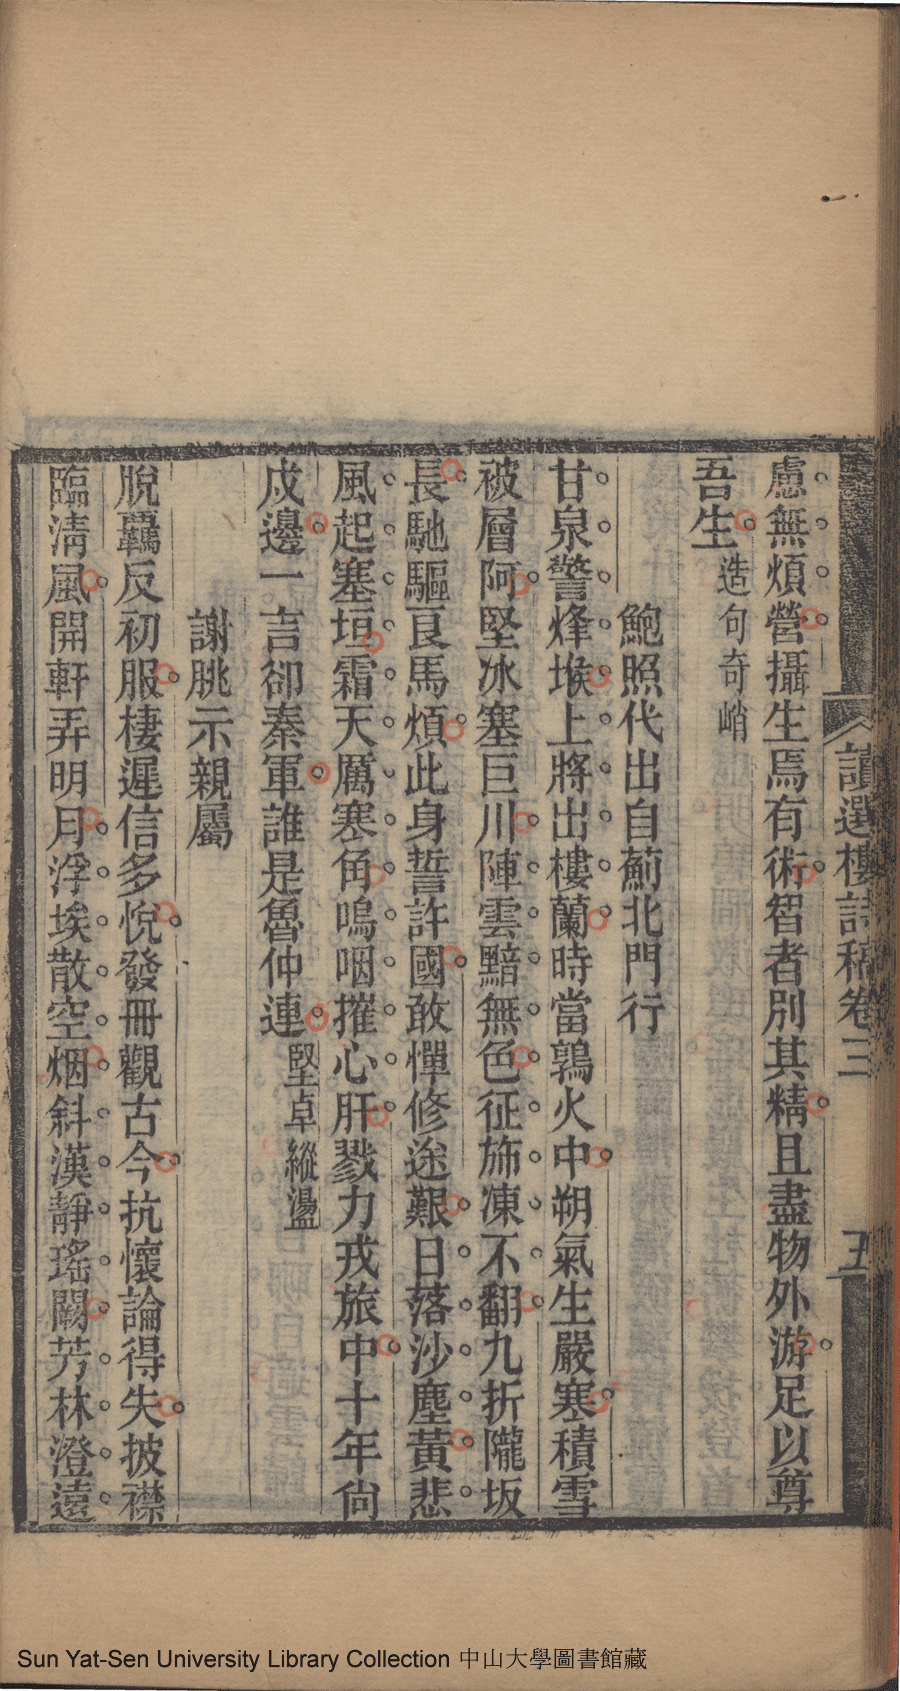 讀選樓詩稿卷三
五
慮無煩營攝生焉有術智者別其精且盡物外游足以尊
吾生造句奇峭
鮑照代出自薊北門行
甘泉警烽堠上將出樓蘭時當鶉火中朔氣生嚴寒積雪
被層阿堅冰塞巨川陣雲黯無色征斾凍不翻九折隴坂
長馳驅良馬煩此身誓許國敢憚修途艱日落沙塵黃悲
風起塞垣霜天厲塞角嗚咽摧心肝戮力戎旅中十年尙
戍邊一言卻秦軍誰是魯仲連堅卓縱盪
謝朓示親屬
脫羈反初服棲遲信多悅發冊觀古今抗懷論得失披襟
臨淸風開軒弄明月浮埃散空烟斜漢靜瑤闕芳林澄遠
Sun Yat-Sen University Library Collection 中山大學圖書館藏